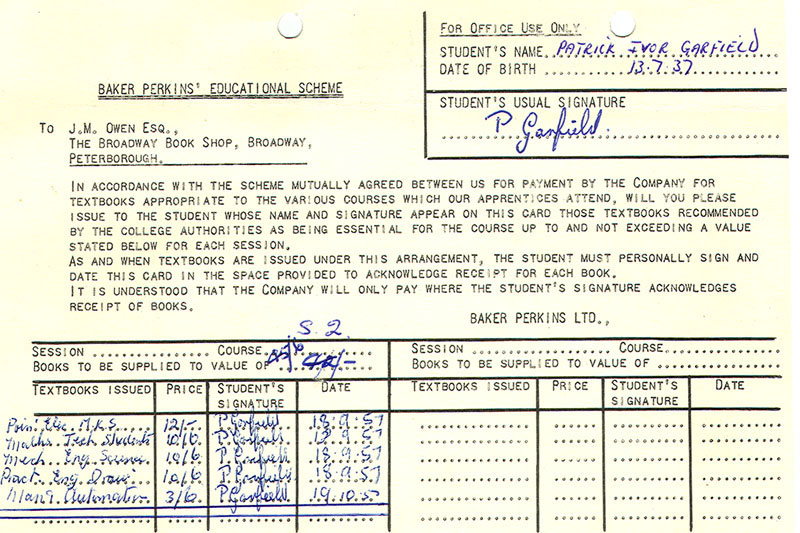 FOR OFFICE USE ONLY
STUDENT'S NAME PATRICK IVOR GARFIELD
DATE OF BIRTH 13.7.37
STUDENT'S USUAL SIGNATURE
P Garfield.
BAKER PERKINS' EDUCATIONAL SCHEME
TO J.M. OWEN ESQ.,
THE BROADWAY BOOK SHOP, BROADWAY,
PETERBOROUGH.
IN ACCORDANCE WITH THE SCHEME MUTUALLY AGREED BETWEEN US FOR PAYMENT BY THE COMPANY FOR
TEXTBOOKS APPROPRIATE TO THE VARIOUS COURSES WHICH OUR APPRENTICES ATTEND, WILL YOU PLEASE
ISSUE TO THE STUDENT WHOSE NAME AND SIGNATURE APPEAR ON THIS CARD THOSE TEXTBOOKS RECOMMENDED
BY THE COLLEGE AUTHORITIES AS BEING ESSENTIAL FOR THE COURSE UP TO AND NOT EXCEEDING A VALUE
STATED BELOW FOR EACH SESSION.
AS AND WHEN TEXTBOOKS ARE ISSUED UNDER THIS ARRANGEMENT, THE STUDENT MUST PERSONALLY SIGN AND
DATE THIS CARD IN THE SPACE PROVIDED TO ACKNOWLEDGE RECEIPT FOR EACH BOOK.
IT IS UNDERSTOOD THAT THE COMPANY WILL ONLY PAY WHERE THE STUDENT'S SIGNATURE ACKNOWLEDGES
RECEIPT OF BOOKS.
BAKER PERKINS LTD.,
S.2.
SESSION COURSE
BOOKS TO BE SUPPLIED TO VALUE OF
SESSION COURSE
BOOKS TO BE SUPPLIED TO VALUE OF
TEXTBOOKS ISSUED PRICE STUDENT'S SIGNATURE DATE
TEXTBOOKS ISSUED PRICE STUDENT'S SIGNATURE DATE
Elec M.K.S. 12/- P Garfield 18.9.57
Maths Tech Students 10/6 P Garfield 18.9.57
Mech. Eng Science 10/6 P. Garfield 18.9.57
Pract. Eng Draw 10/6 P. Garfield 18.9.57
3/6 P Garfield 19.10.5